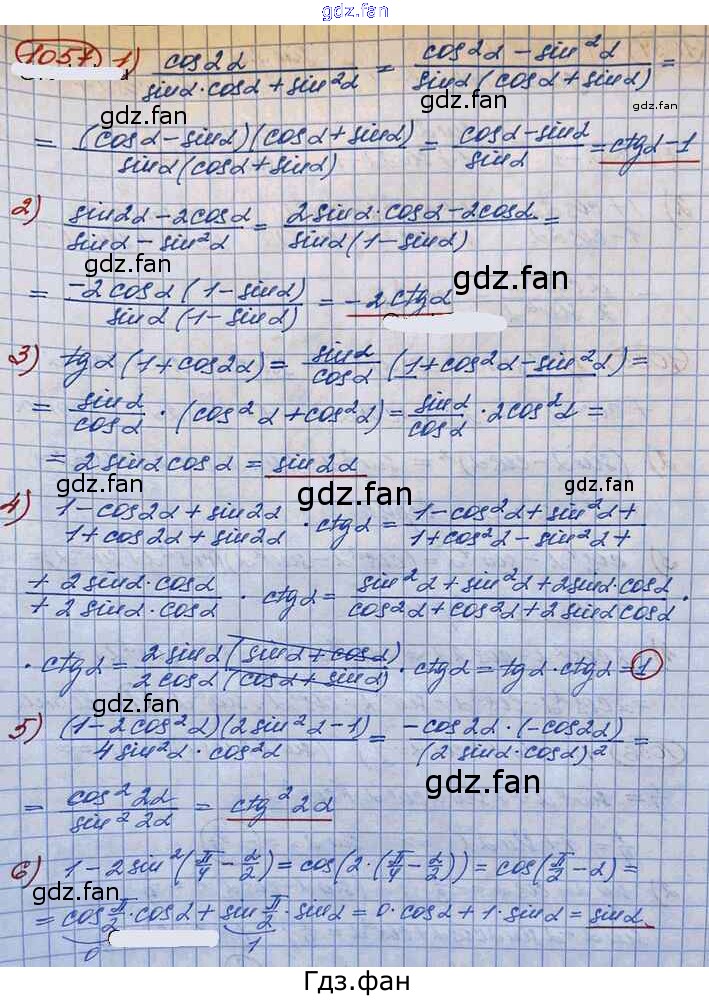 gdz.fan
1057) 1) cos2α / (sinα·cosα + sin²α) = (cos²α − sin²α) / (sinα(cosα + sinα)) =
gdz.fan gdz.fan
= (cosα − sinα)(cosα + sinα) / (sinα(cosα + sinα)) = (cosα − sinα) / sinα = ctgα − 1
2) (sin2α − 2cosα) / (sinα − sin²α) = (2sinα·cosα − 2cosα) / (sinα(1 − sinα)) =
gdz.fan gdz.fan
= −2cosα(1 − sinα) / (sinα(1 − sinα)) = −2ctgα
3) tgα(1 + cos2α) = sinα/cosα (1 + cos²α − sin²α) =
= sinα/cosα · (cos²α + cos²α) = sinα/cosα · 2cos²α =
= 2sinαcosα = sin2α
gdz.fan gdz.fan
4) (1 − cos2α + sin2α) / (1 + cos2α + sin2α) · ctgα = (1 − cos²α + sin²α + / 1 + cos²α − sin²α +
+ 2sinα·cosα / + 2sinα·cosα) · ctgα = (sin²α + sin²α + 2sinα·cosα) / (cos²α + cos²α + 2sinαcosα) ·
· ctgα = 2sinα(sinα + cosα) / (2cosα(cosα + sinα)) · ctgα = tgα·ctgα = 1
gdz.fan gdz.fan
5) (1 − 2cos²α)(2sin²α − 1) / (4sin²α·cos²α) = −cos2α·(−cos2α) / (2sinα·cosα)² =
gdz.fan
= cos²2α / sin²2α = ctg²2α
gdz.fan
6) 1 − 2sin²(π/4 − α/2) = cos(2·(π/4 − α/2)) = cos(π/2 − α) =
gdz.fan gdz.fan
= cos π/2 · cosα + sin π/2 · sinα = 0·cosα + 1·sinα = sinα
0 1
Гдз.фан